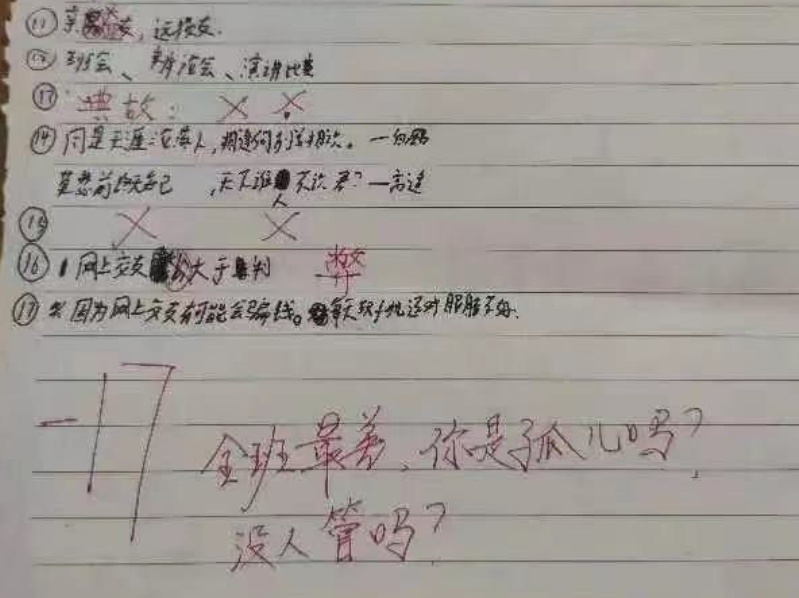 ⑪ 亲友, 远损友.
⑫ 班会、辩论会、演讲比赛
⑬ 典故: × ×
⑭ 同是天涯沦落人,相逢何必曾相识。—白
莫愁前路无知己 ,天下谁人不识君?—高适
⑮ × ×
⑯ 网上交友大于 弊
⑰ 因为网上交友有可能会骗钱。手机还对眼睛不好.
-17
全班最差、你是孤儿吗?
没人管吗?